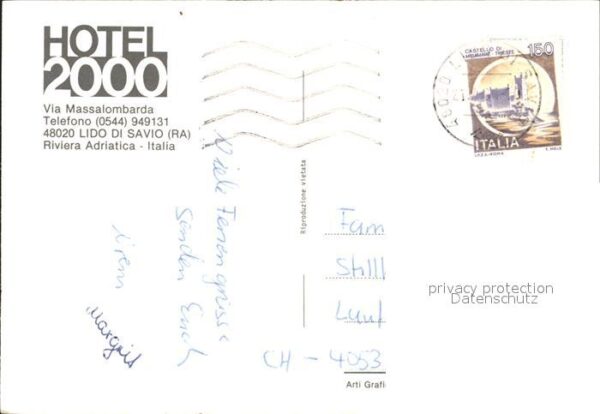 HOTEL
2000
Via Massalombarda
Telefono (0544) 949131
48020 LIDO DI SAVIO (RA)
Riviera Adriatica - Italia
Viele Feriengrüsse
senden Euch
Margrit
Riproduzione vietata
CASTELLO DI
MIRAMARE - TRIESTE
150
ITALIA
Fam
Still
CH - 4053
privacy protection
Datenschutz
Arti Grafi